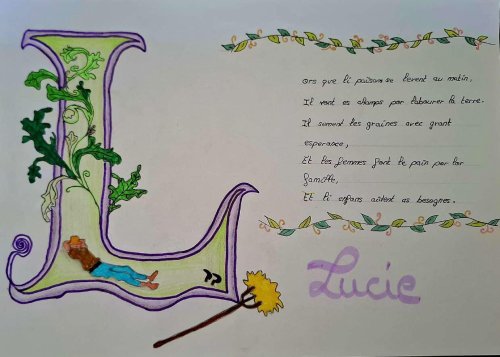 L
ors que li païsans se levent au matin,
Il vont es champs por labourer la terre.
Il sument les graines avec grant
esperance,
Et les femmes font le pain por lor
famille,
Et li enfans aident as besognes.
Lucie